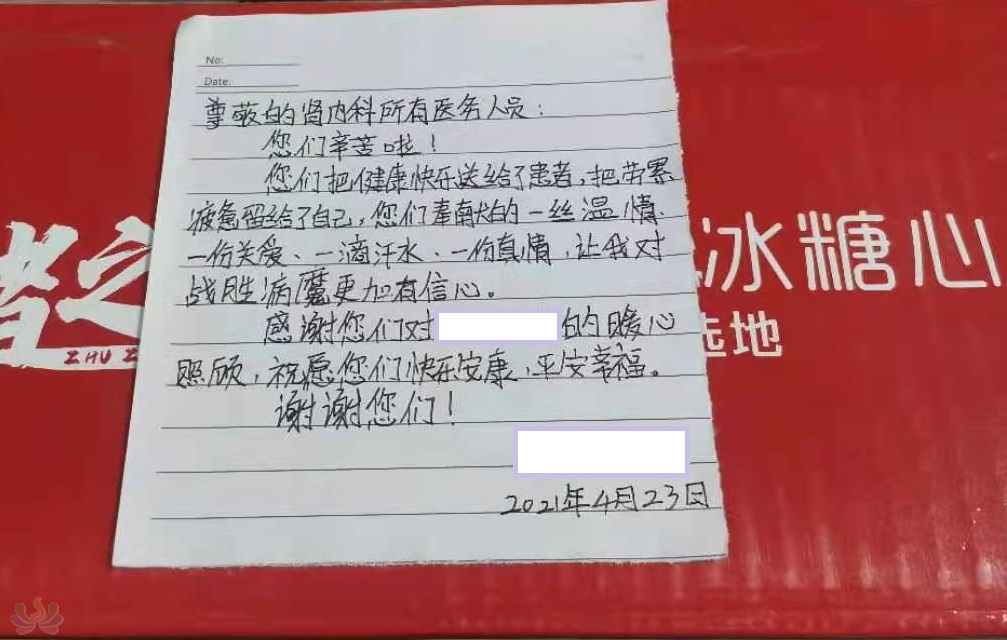 No:
Date:
尊敬的肾内科所有医务人员：
您们辛苦啦！
您们把健康快乐送给了患者，把苦累
疲惫留给了自己，您们奉献的一丝温情、
一份关爱、一滴汗水、一份真情，让我对
战胜病魔更加有信心。
感谢您们对
的暖心
照顾，祝愿您们快乐安康，平安幸福。
谢谢您们！
2021年4月23日
者之
ZHU Z
冰糖心
选地